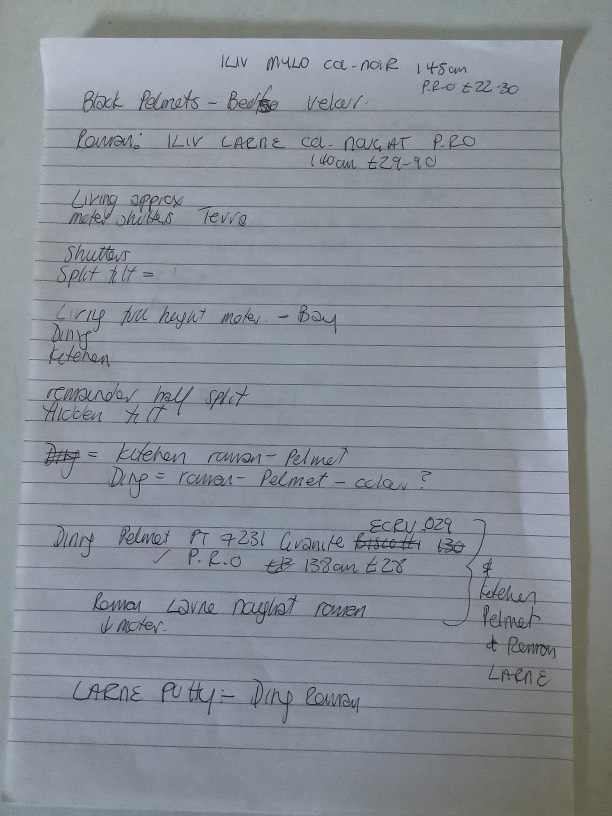 ILIV MYLO col-noir 145cm
P.R.O £22-30
Black Pelmets - Beds velour.
Roman: ILIV LARNE col- nougAT P.RO
140cm £29-90
Living approx
moter shutters Terra
Shutters
Split tilt =
Living full height moter. - Bay
Ding
Kitchen
remainder half split
Hidden tilt
Ding = Kitchen roman- Pelmet
Ding = roman- Pelmet - colour ?
ECRU 029
Dining Pelmet PT 7231 Granite Biscotti 130
P.R.O 138cm £28
&
Kitchen
Pelmet
& Roman
LARNE
Roman Larne noughat roman
↓ moter.
LARNE Putty:- Ding Roman